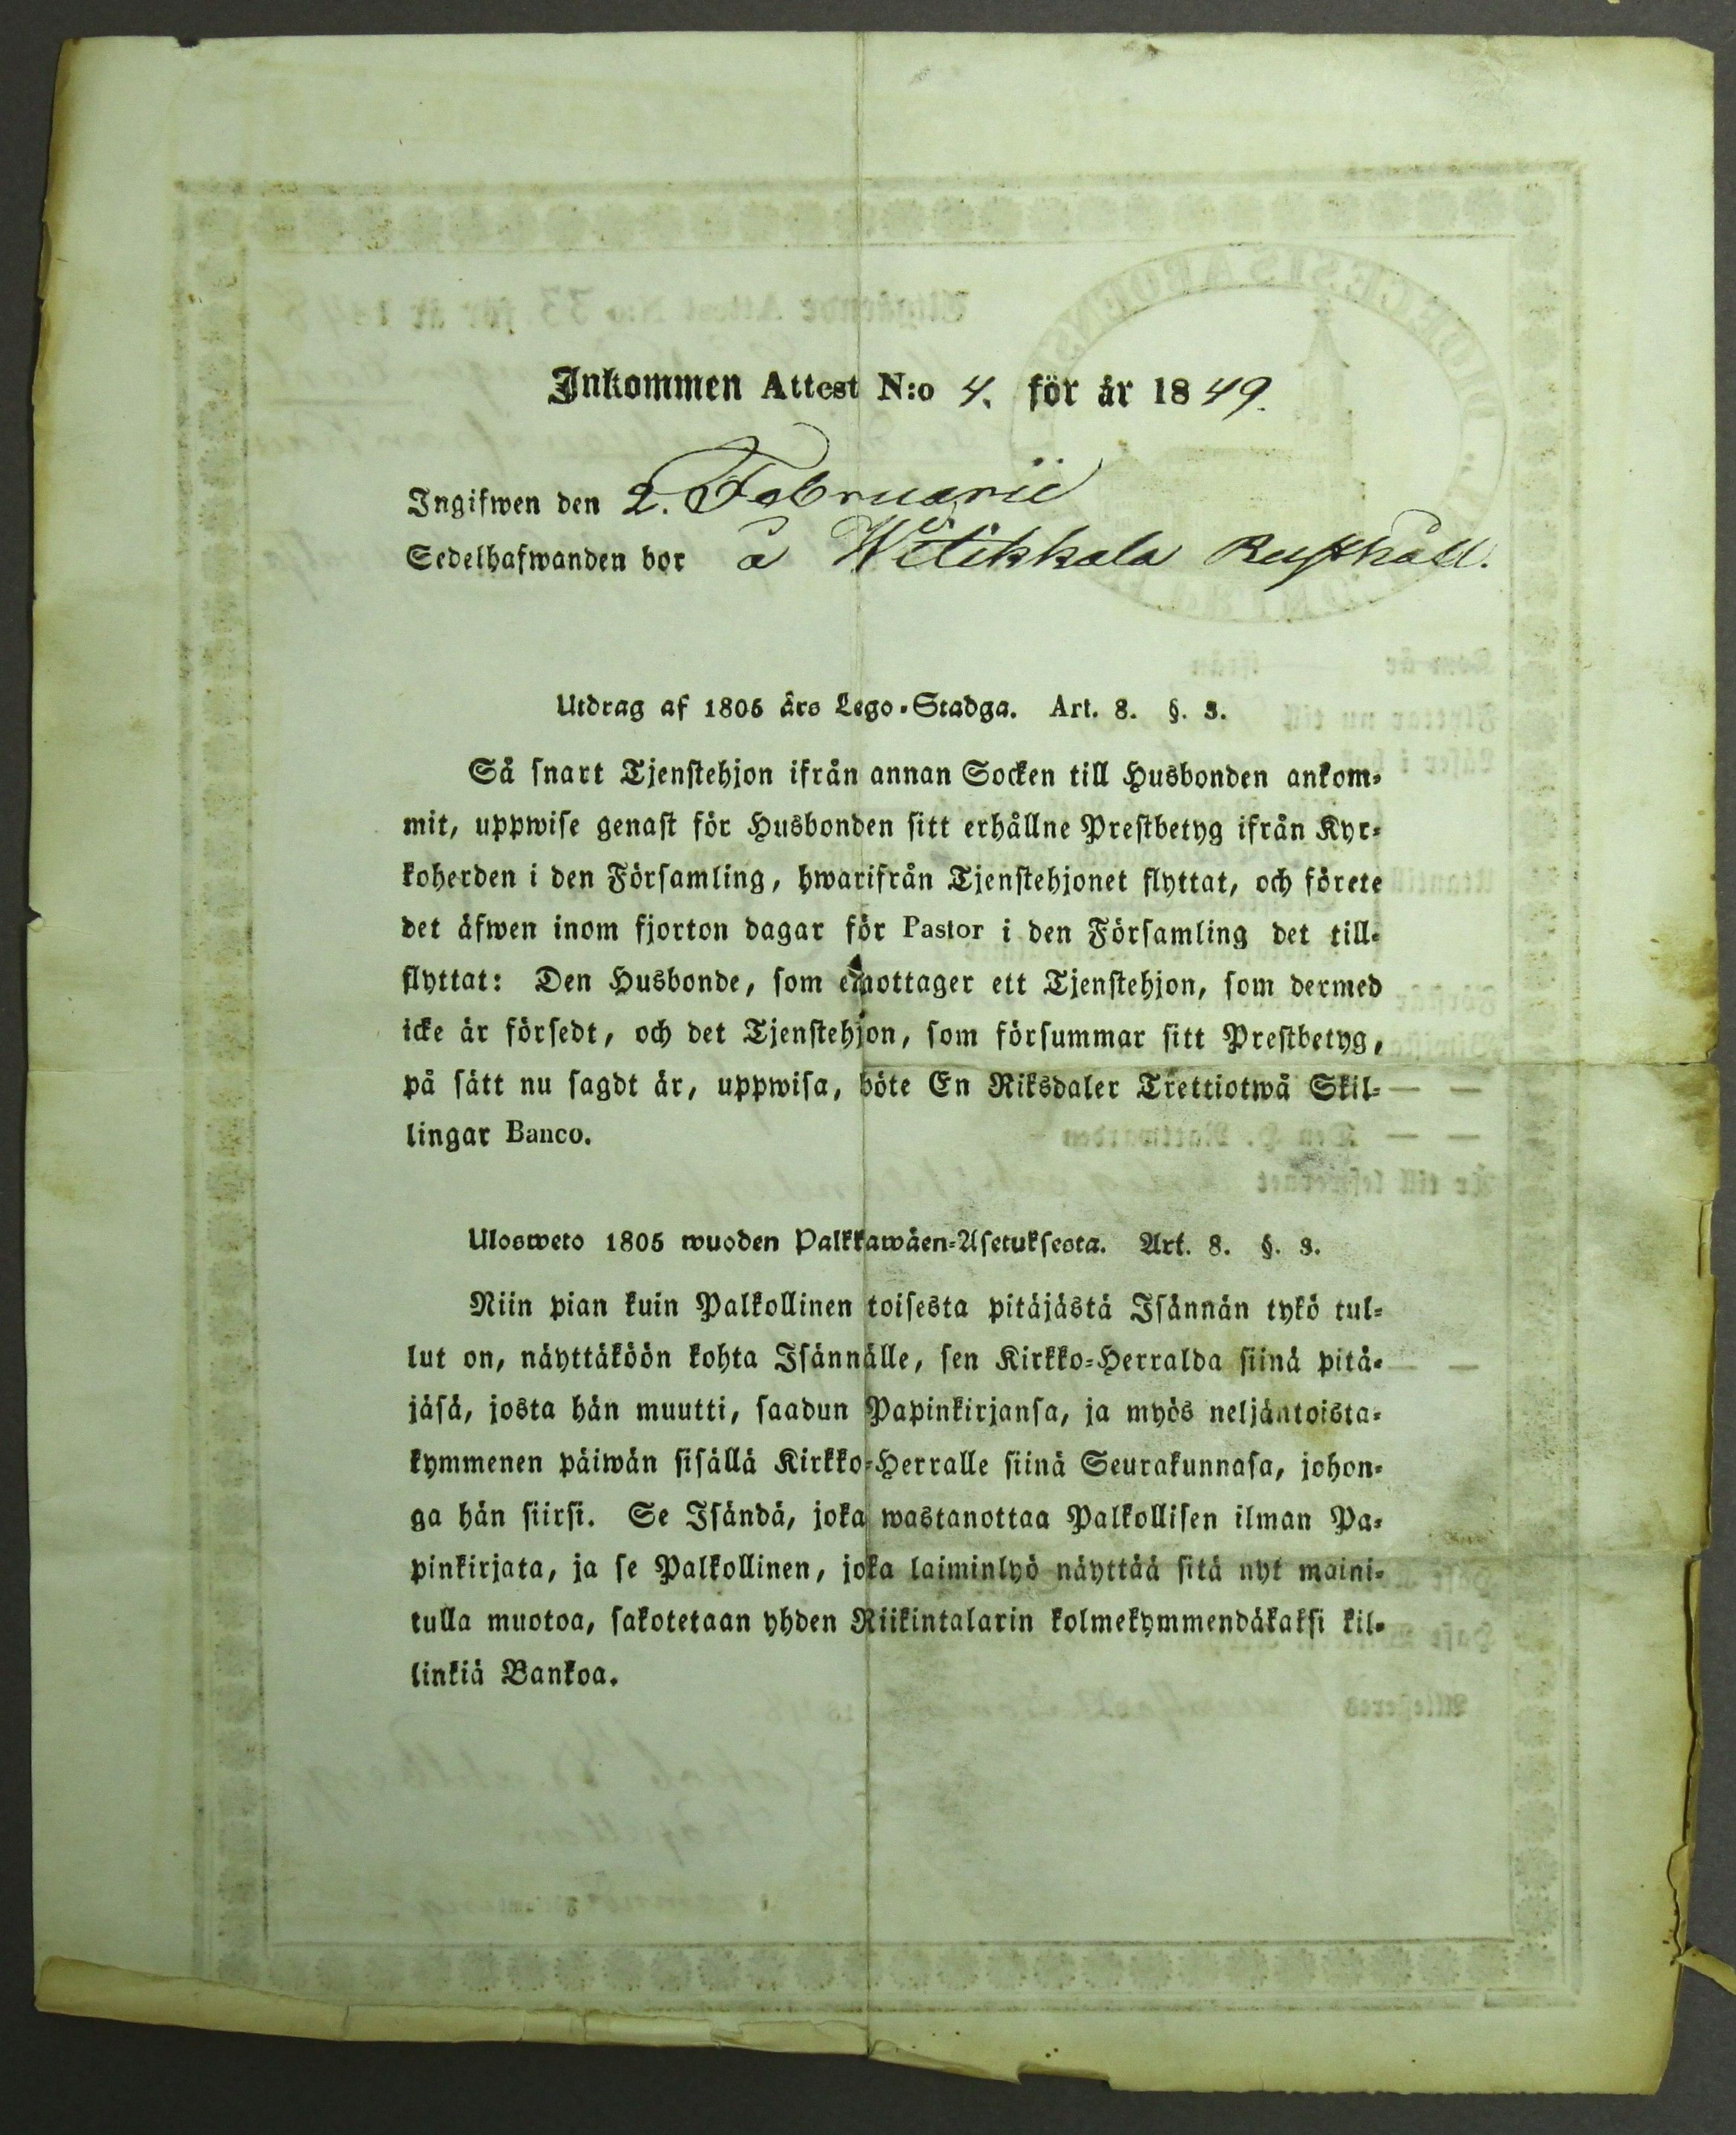 Inkommen Attest N:o 4. för år 1849.
Ingifwen den 2. Februarii
Sedelhafwanden bor å Witikkala Rusthåll.
Utdrag af 1805 års Lego-Stadga. Art. 8. §. 3.
Så snart Tjenstehjon ifrån annan Socken till Husbonden ankom-
mit, uppwise genast för Husbonden sitt erhållne Prestbetyg ifrån Kyr-
koherden i den Församling, hwarifrån Tjenstehjonet flyttat, och förete
det äfwen inom fjorton dagar för Pastor i den Församling det till-
flyttat: Den Husbonde, som emottager ett Tjenstehjon, som dermed
icke är försedt, och det Tjenstehjon, som försummar sitt Prestbetyg,
på sätt nu sagdt är, uppwisa, böte En Riksdaler Trettiotwå Skil-
lingar Banco.
Ulosweto 1805 wuoden Palkkawäen-Asetuksesta. Art. 8. §. 3.
Niin pian kuin Palkollinen toisesta pitäjästä Isännän tykö tul-
lut on, näyttäköön kohta Isännälle, sen Kirkko-Herralda siinä pitä-
jäsä, josta hän muutti, saadun Papinkirjansa, ja myös neljäntoista-
kymmenen päiwän sisällä Kirkko-Herralle siinä Seurakunnasa, johon-
ga hän siirsi. Se Isändä, joka wastanottaa Palkollisen ilman Pa-
pinkirjata, ja se Palkollinen, joka laiminlyö näyttää sitä nyt maini-
tulla muotoa, sakotetaan yhden Riikintalarin kolmekymmendäkaksi kil-
linkiä Bankoa.